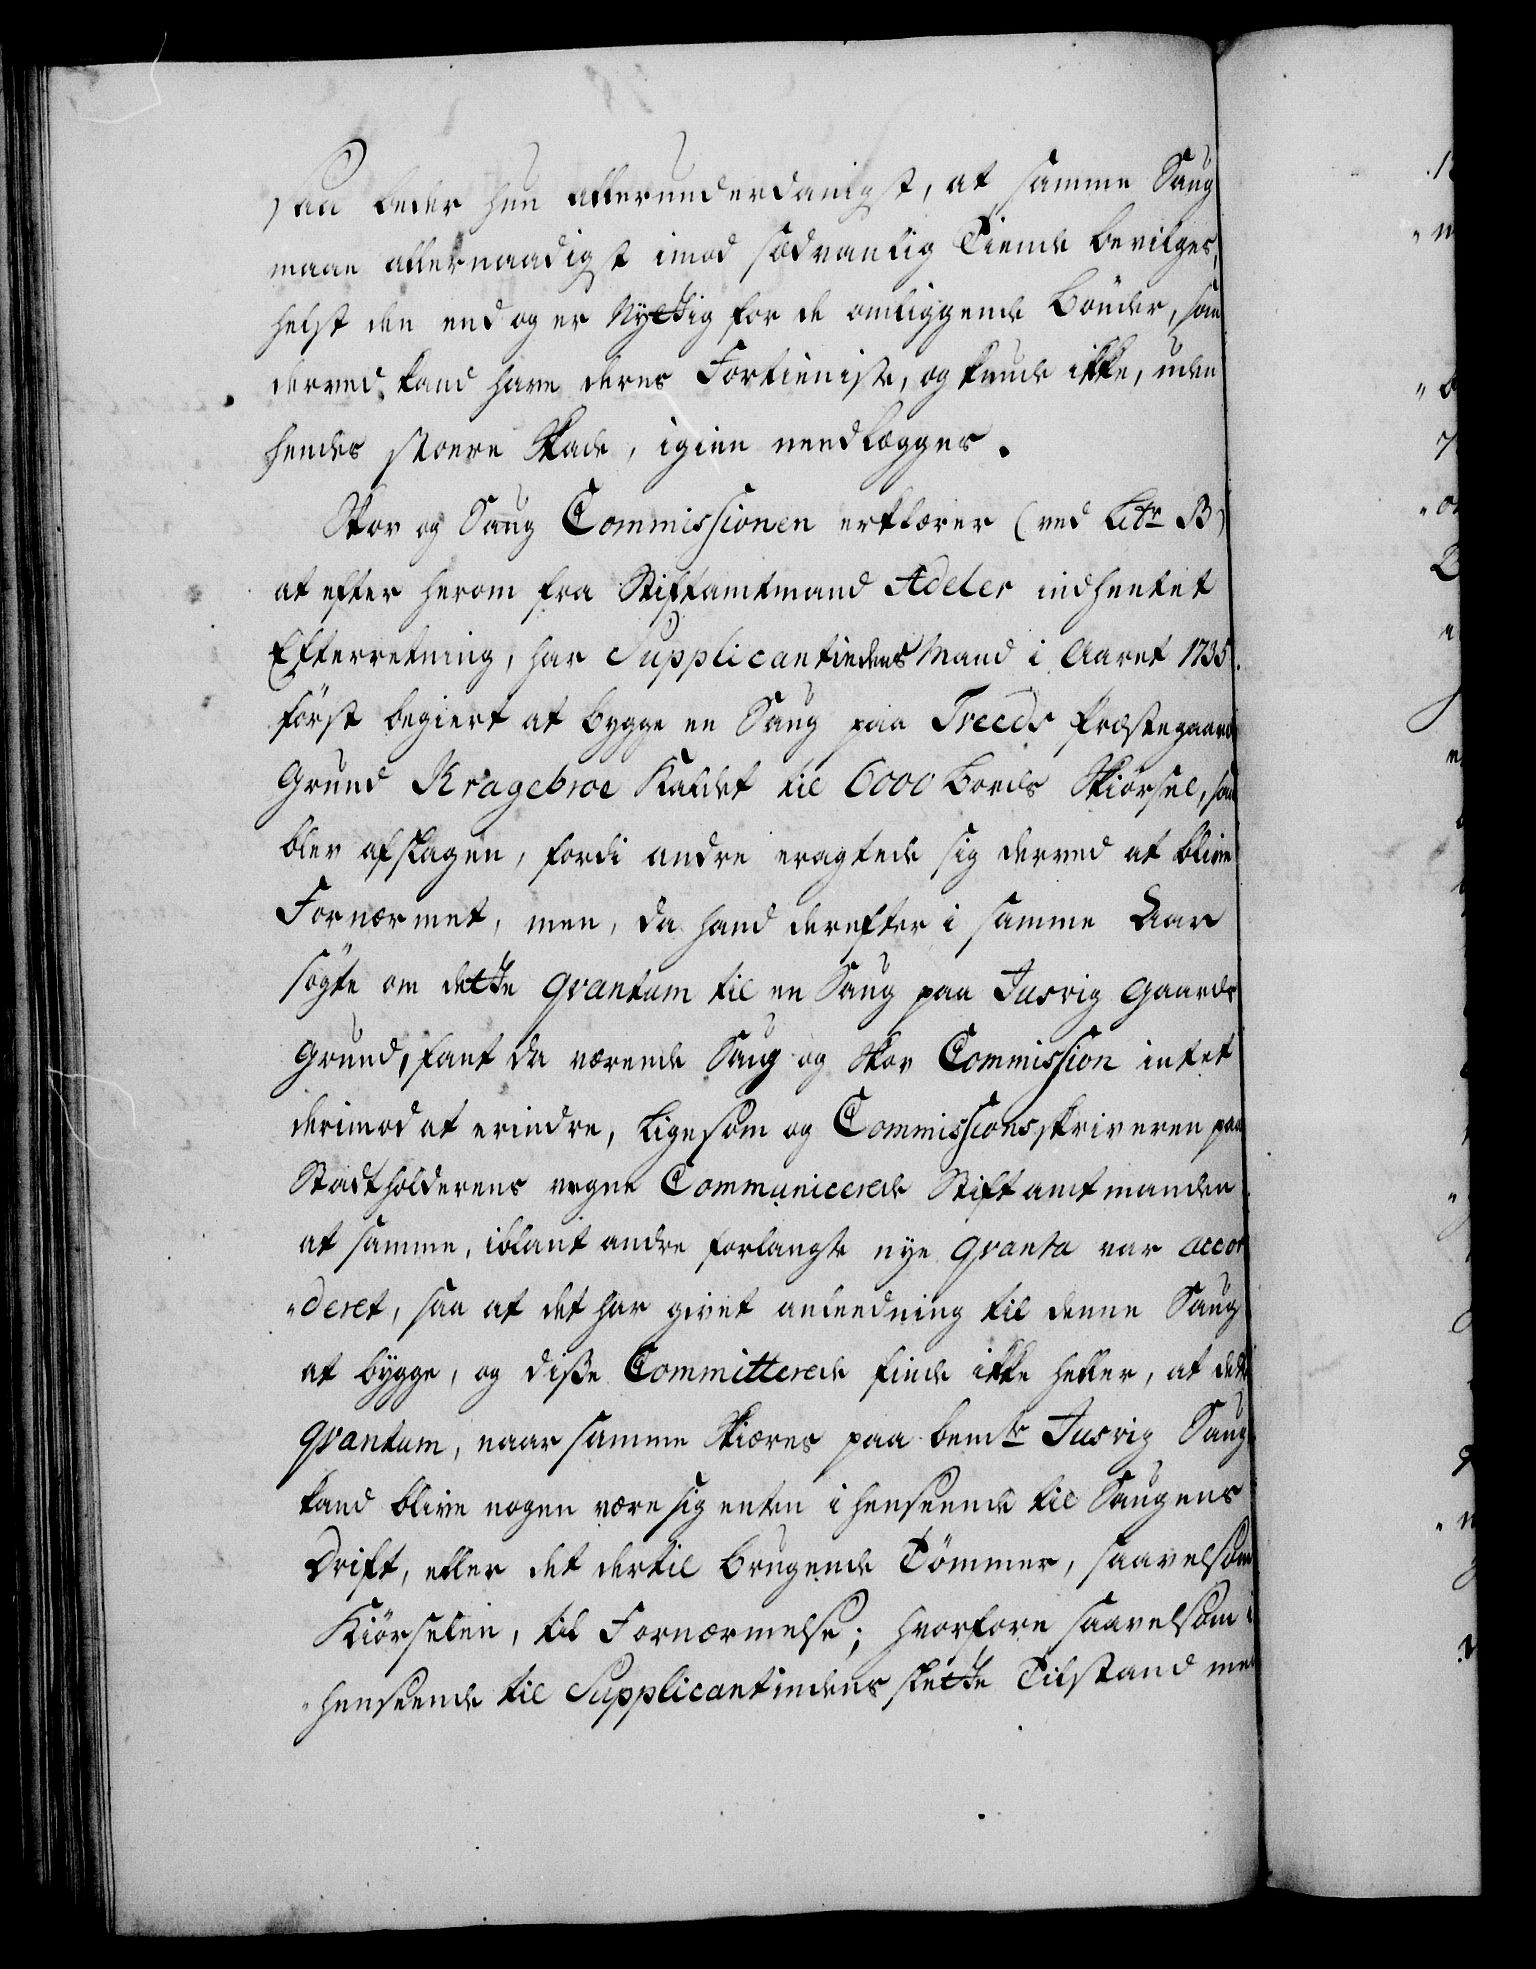 saa beder hun allerunderdanigst, at samme Saug
maae allernaadigst imod sædvanlig Tiende bevilges,
helst den end og er Nyttig for de omliggende Bönder, som
derved kand have deres Fortieniste, og kunde ikke, uden
hendes störe Skade, igien needlægges.
Skov og Saug Commissionen erklærer (ved Litr B)
at efter herom fra Stiftamtmand Adeler indhentet
Efterretning, har Supplicantindens Mand i Aaret 1735.
först begiert at bygge en Saug paa Treeds Præstegaards
Grund Kragebroe Kaldet til 6000 Bords Skiörsel, som
blev afslagen, fordi andre eragtede sig derved at blive
Fornærmet, men, da hand derefter i samme Aar
sögte om dette qvantum til en Saug paa Jusvig Gaards
Grund, fant da værende Saug og Skov Commission intet
derimod at erindre, ligesom og Commissionsskriveren paa
Stadtholderens vegne Communicerede Stiftamtmanden
at samme, iblant andre forlangte nye qvanta var accor
"deret, saa at det har givet anleedning til denne Saug
at bygge, og disse Committerede finde ikke heller, at dette
qvantum, naar samme Skiæres paa bemte Jusvig Saug
kand blive nogen være sig enten i henseende til Saugens
Drift, eller det dertil brugende Tömmer, saavelsom
Kiörselen, til Fornærmelse; hvorfore saavelsom i
henseende til Supplicantindens slette Tilstand med